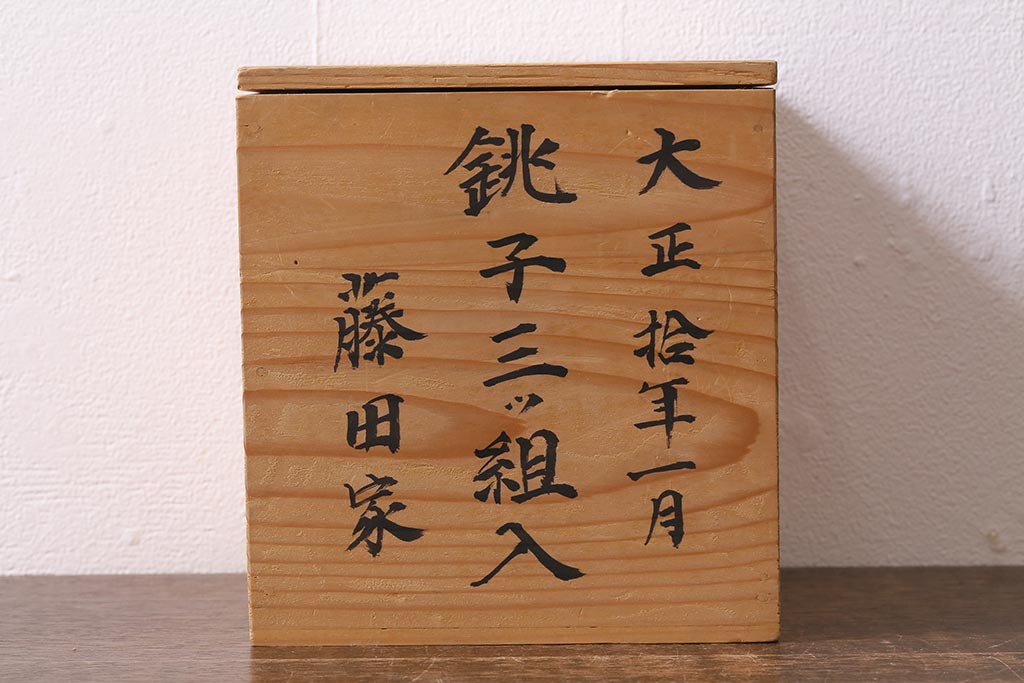 大正拾年一月
銚子三ッ組入
藤田家